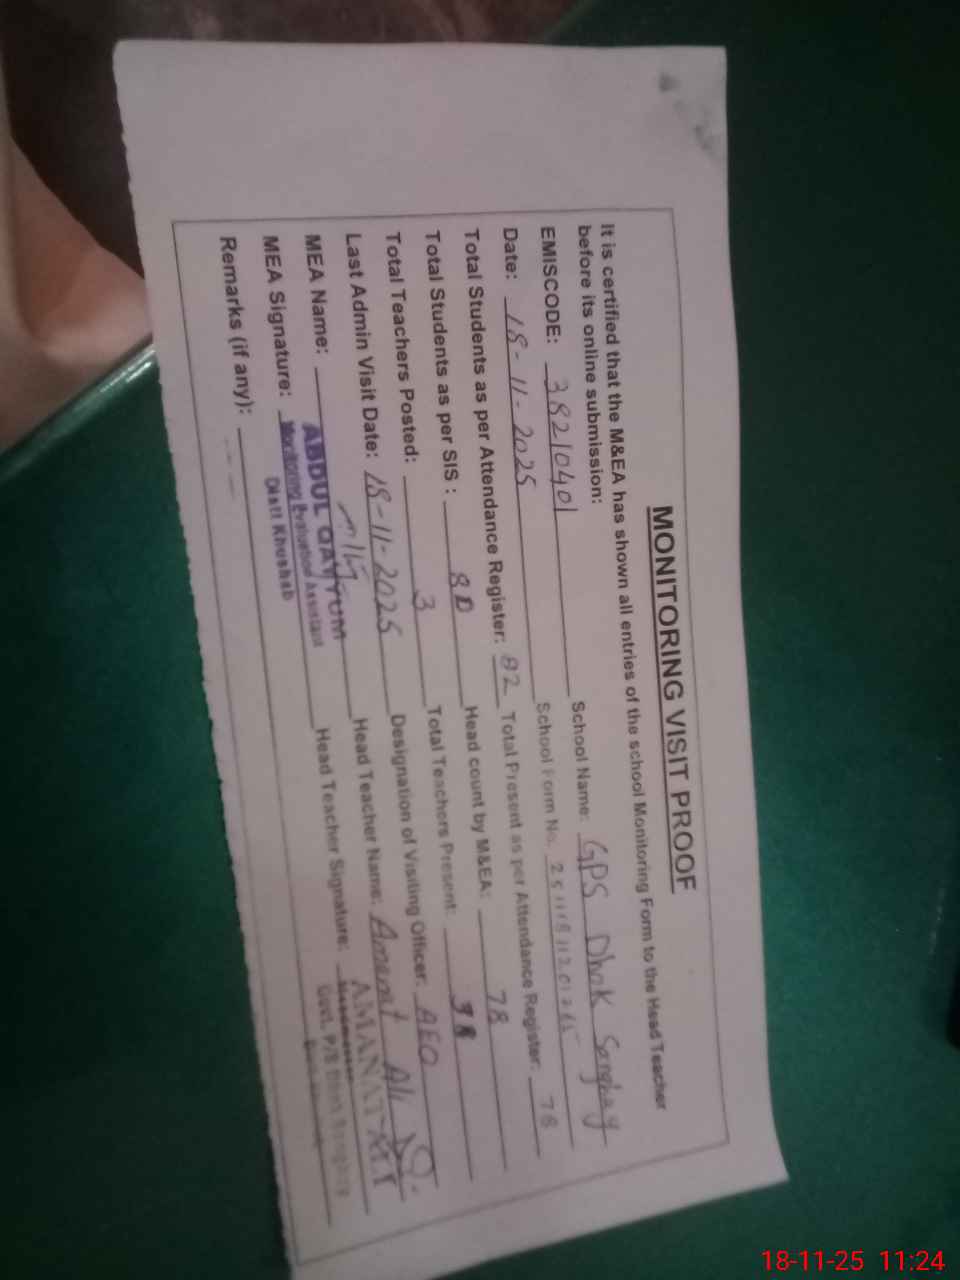 MONITORING VISIT PROOF
It is certified that the M&EA has shown all entries of the school Monitoring Form to the Head Teacher
before its online submission:
EMISCODE: 38210401 School Name: GPS Dhok
Date: 18-11-2025 School Form No.
Total Students as per Attendance Register: 82 Total Present as per Attendance Register: 78
Total Students as per SIS : 80 Head count by M&EA: 78
Total Teachers Posted: 3 Total Teachers Present:
Last Admin Visit Date: 18-11-2025 Designation of Visiting Officer: AEO
MEA Name: Head Teacher Name: Amanat Ali
ABDUL QAYYUM
MEA Signature: Head Teacher Signature:
Monitoring Evaluation Assistant
Distt Khushab
AMANAT ALI
Govt. P/S
Remarks (if any):
18-11-25 11:24